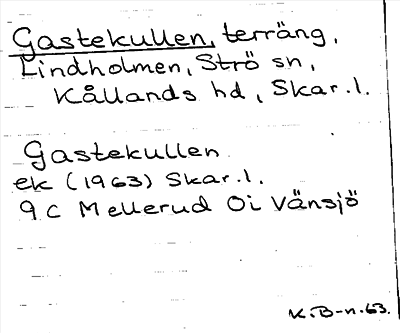 Gastekullen, terräng,
Lindholmen, Strö sn,
Kållands hd, Skar.l.
Gastekullen
ek (1963) Skar.l.
9C Mellerud Oi Vänsjö
K.B-n.63.